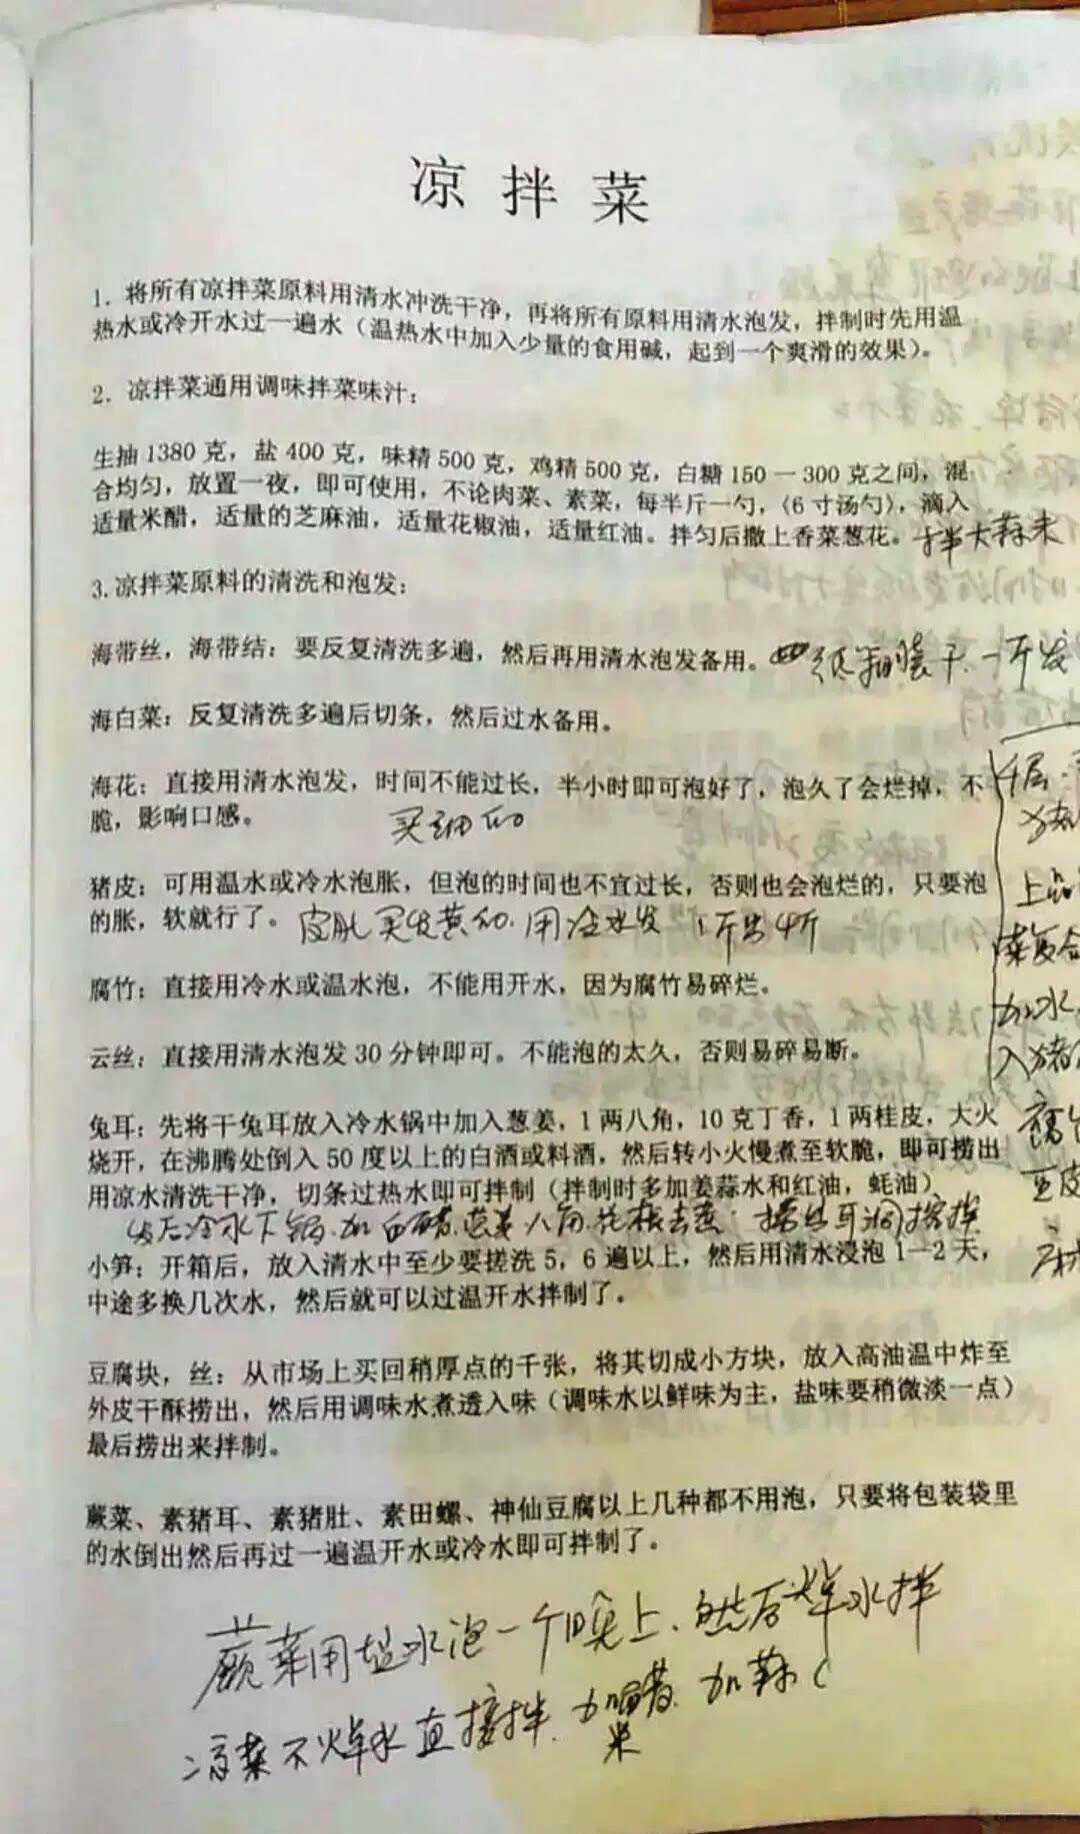 凉拌菜
1. 将所有凉拌菜原料用清水冲洗干净，再将所有原料用清水泡发，拌制时先用温
热水或冷开水过一遍水（温热水中加入少量的食用碱，起到一个爽滑的效果）。
2. 凉拌菜通用调味拌菜味汁：
生抽1380克，盐400克，味精500克，鸡精500克，白糖150—300克之间，混
合均匀，放置一夜，即可使用，不论肉菜、素菜，每半斤一勺，（6寸汤勺），滴入
适量米醋，适量的芝麻油，适量花椒油，适量红油。拌匀后撒上香菜葱花。拌大蒜末
3.凉拌菜原料的清洗和泡发：
海带丝，海带结：要反复清洗多遍，然后再用清水泡发备用。
海白菜：反复清洗多遍后切条，然后过水备用。
海花：直接用清水泡发，时间不能过长，半小时即可泡好了，泡久了会烂掉，不
脆，影响口感。 买细的
猪皮：可用温水或冷水泡胀，但泡的时间也不宜过长，否则也会泡烂的，只要泡
的胀，软就行了。 皮肚买发黄的.用冷水发 1斤出4斤
腐竹：直接用冷水或温水泡，不能用开水，因为腐竹易碎烂。
云丝：直接用清水泡发30分钟即可。不能泡的太久，否则易碎易断。
兔耳：先将干兔耳放入冷水锅中加入葱姜，1两八角，10克丁香，1两桂皮，大火
烧开，在沸腾处倒入50度以上的白酒或料酒，然后转小火慢煮至软脆，即可捞出
用凉水清洗干净，切条过热水即可拌制（拌制时多加姜蒜水和红油，蚝油）
冷水下锅.加白醋.葱姜八角花椒去煮
小笋：开箱后，放入清水中至少要搓洗5，6遍以上，然后用清水浸泡1—2天，
中途多换几次水，然后就可以过温开水拌制了。
豆腐块，丝：从市场上买回稍厚点的千张，将其切成小方块，放入高油温中炸至
外皮干酥捞出，然后用调味水煮透入味（调味水以鲜味为主，盐味要稍微淡一点）
最后捞出来拌制。
蕨菜、素猪耳、素猪肚、素田螺、神仙豆腐以上几种都不用泡，只要将包装袋里
的水倒出然后再过一遍温开水或冷水即可拌制了。
蕨菜用盐水泡一个晚上.然后焯水拌
凉菜不焯水直接拌.加醋.加蒜
米